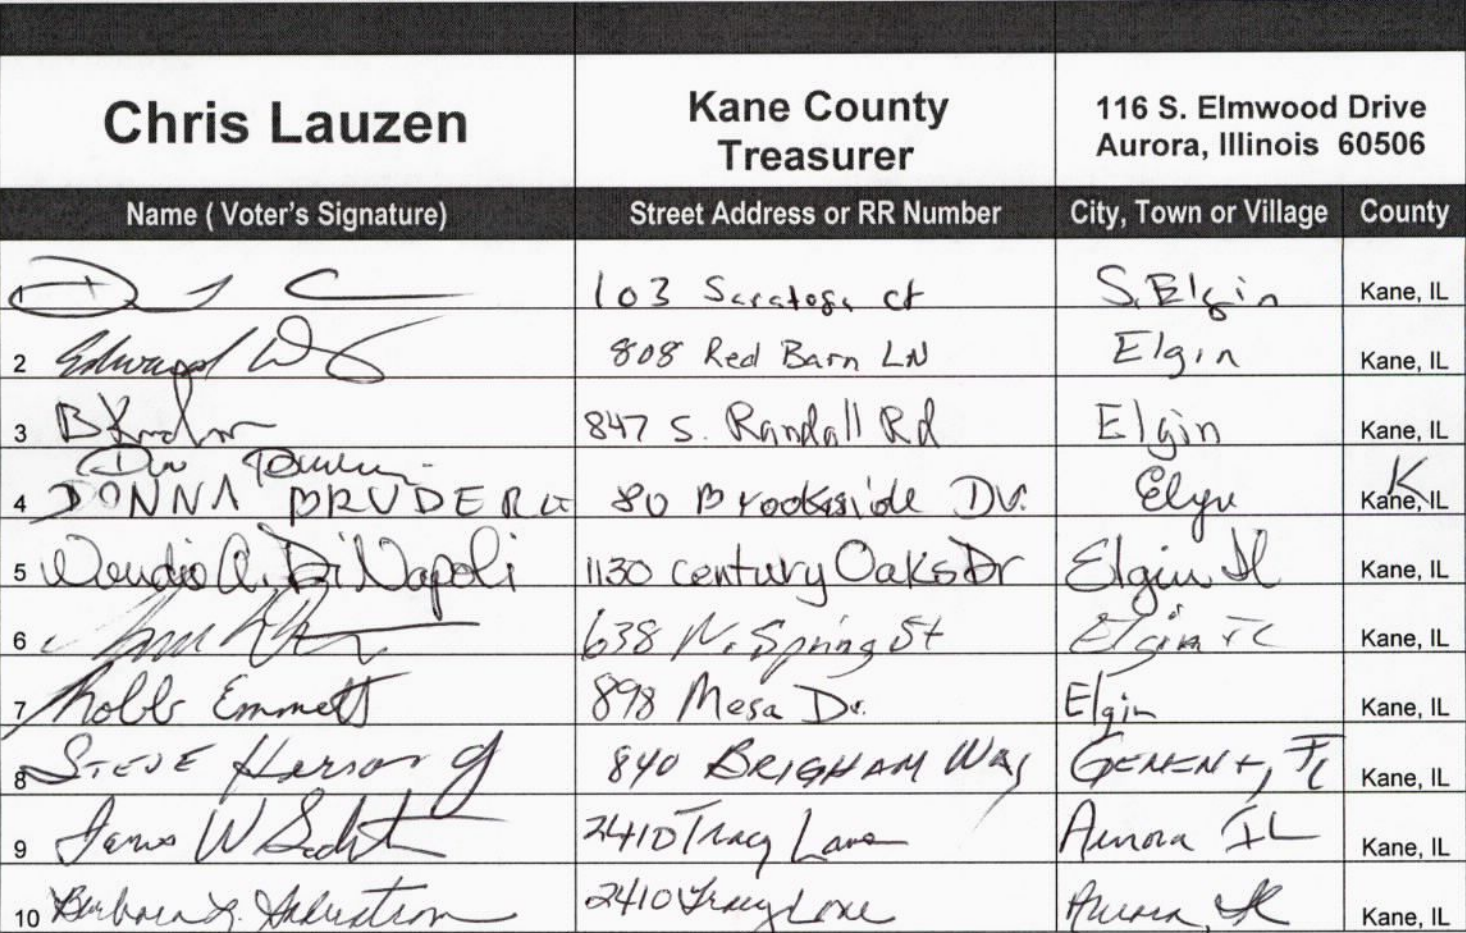 Chris Lauzen
Kane County
Treasurer
116 S. Elmwood Drive
Aurora, Illinois 60506
Name ( Voter's Signature) Street Address or RR Number City, Town or Village County
103 Saratoga ct S. Elgin Kane, IL
2 Edward 808 Red Barn LN Elgin Kane, IL
3 847 S. Randall Rd Elgin Kane, IL
4 DONNA 80 Brookside Dr. Kane, IL
5 A. DiNapoli 1130 Century Oaks Dr Elgin Il Kane, IL
6 638 N. Spring St Elgin IL Kane, IL
7 Robb Emmett 898 Mesa Dr. Elgin Kane, IL
8 STEVE 840 BRIGHAM WAy Kane, IL
9 James W 2410 Tracy Lane Aurora IL Kane, IL
10 Barbara 2410 Tracy Lane Aurora, Il Kane, IL